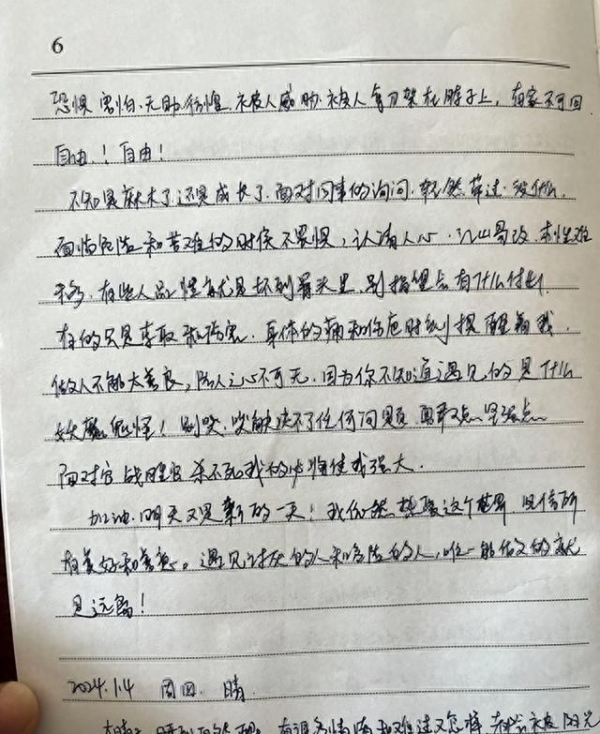 6
恐惧 害怕、无助彷惶、被人威胁、被人拿刀架在脖子上，有家不可回
自由！自由！
不知是麻木了还是成长了，面对同事的询问，轻然带过，没什么，
面临危险和苦难的时候不畏惧，认清人心，江山易改，本性难
移，有些人品性就是坏到骨头里，别指望点有什么付出
有的只是索取和伤害，身体的痛和伤疤时刻提醒着我，
做人不能太善良，防人之心不可无，因为你不知道遇见的是什么
妖魔鬼怪！别哭，哭解决不了任何问题，勇敢点，坚强点
面对它战胜它 杀不死我的必将使我强大．
加油，明天又是新的一天！我仍然热爱这个世界，且信所
有美好和善意。遇见讨厌的人和危险的人，唯一能做的就
是远离！
2024.1.4 周四．晴